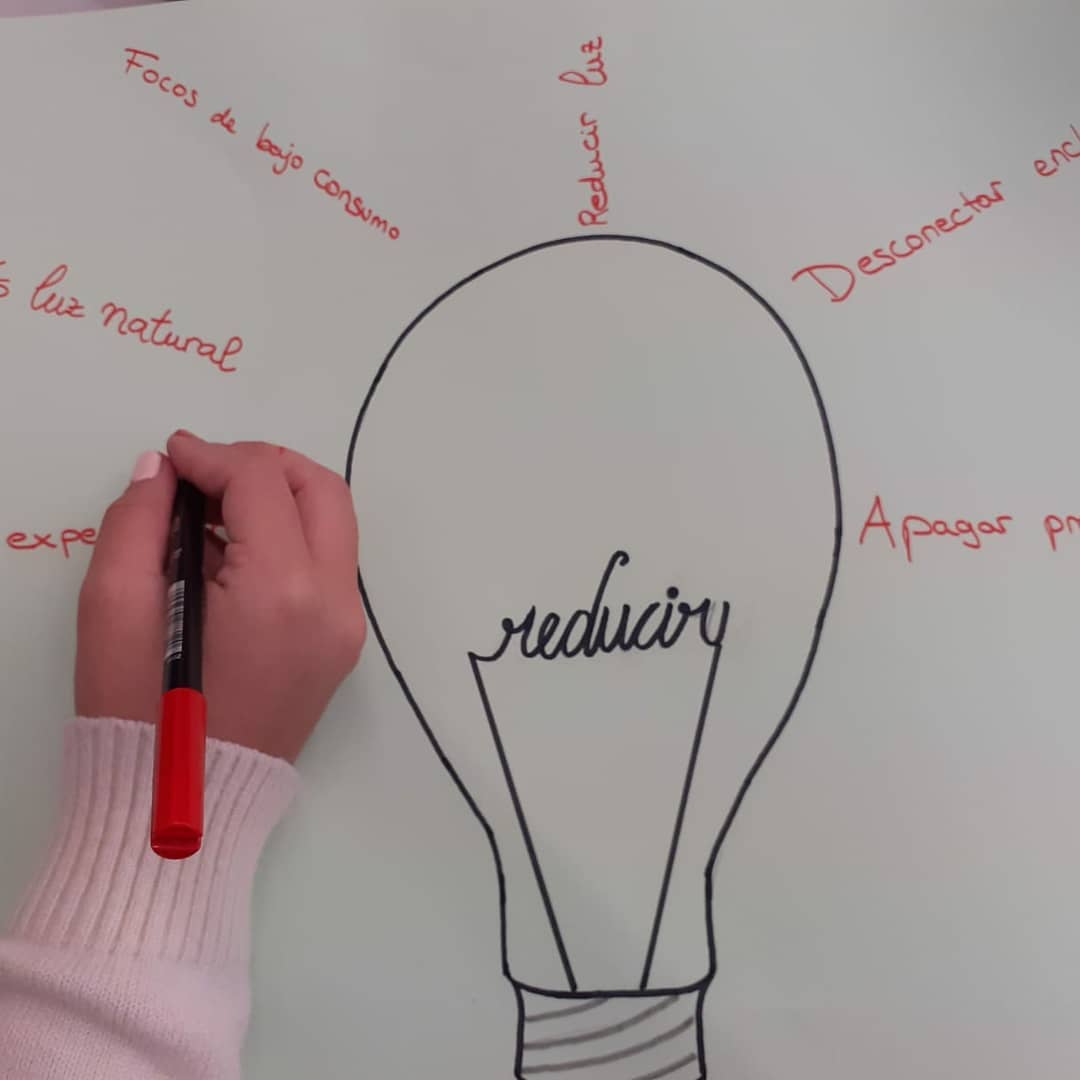 Focos de bajo consumo
Reducir luz
Desconectar
luz natural
Apagar
reducir